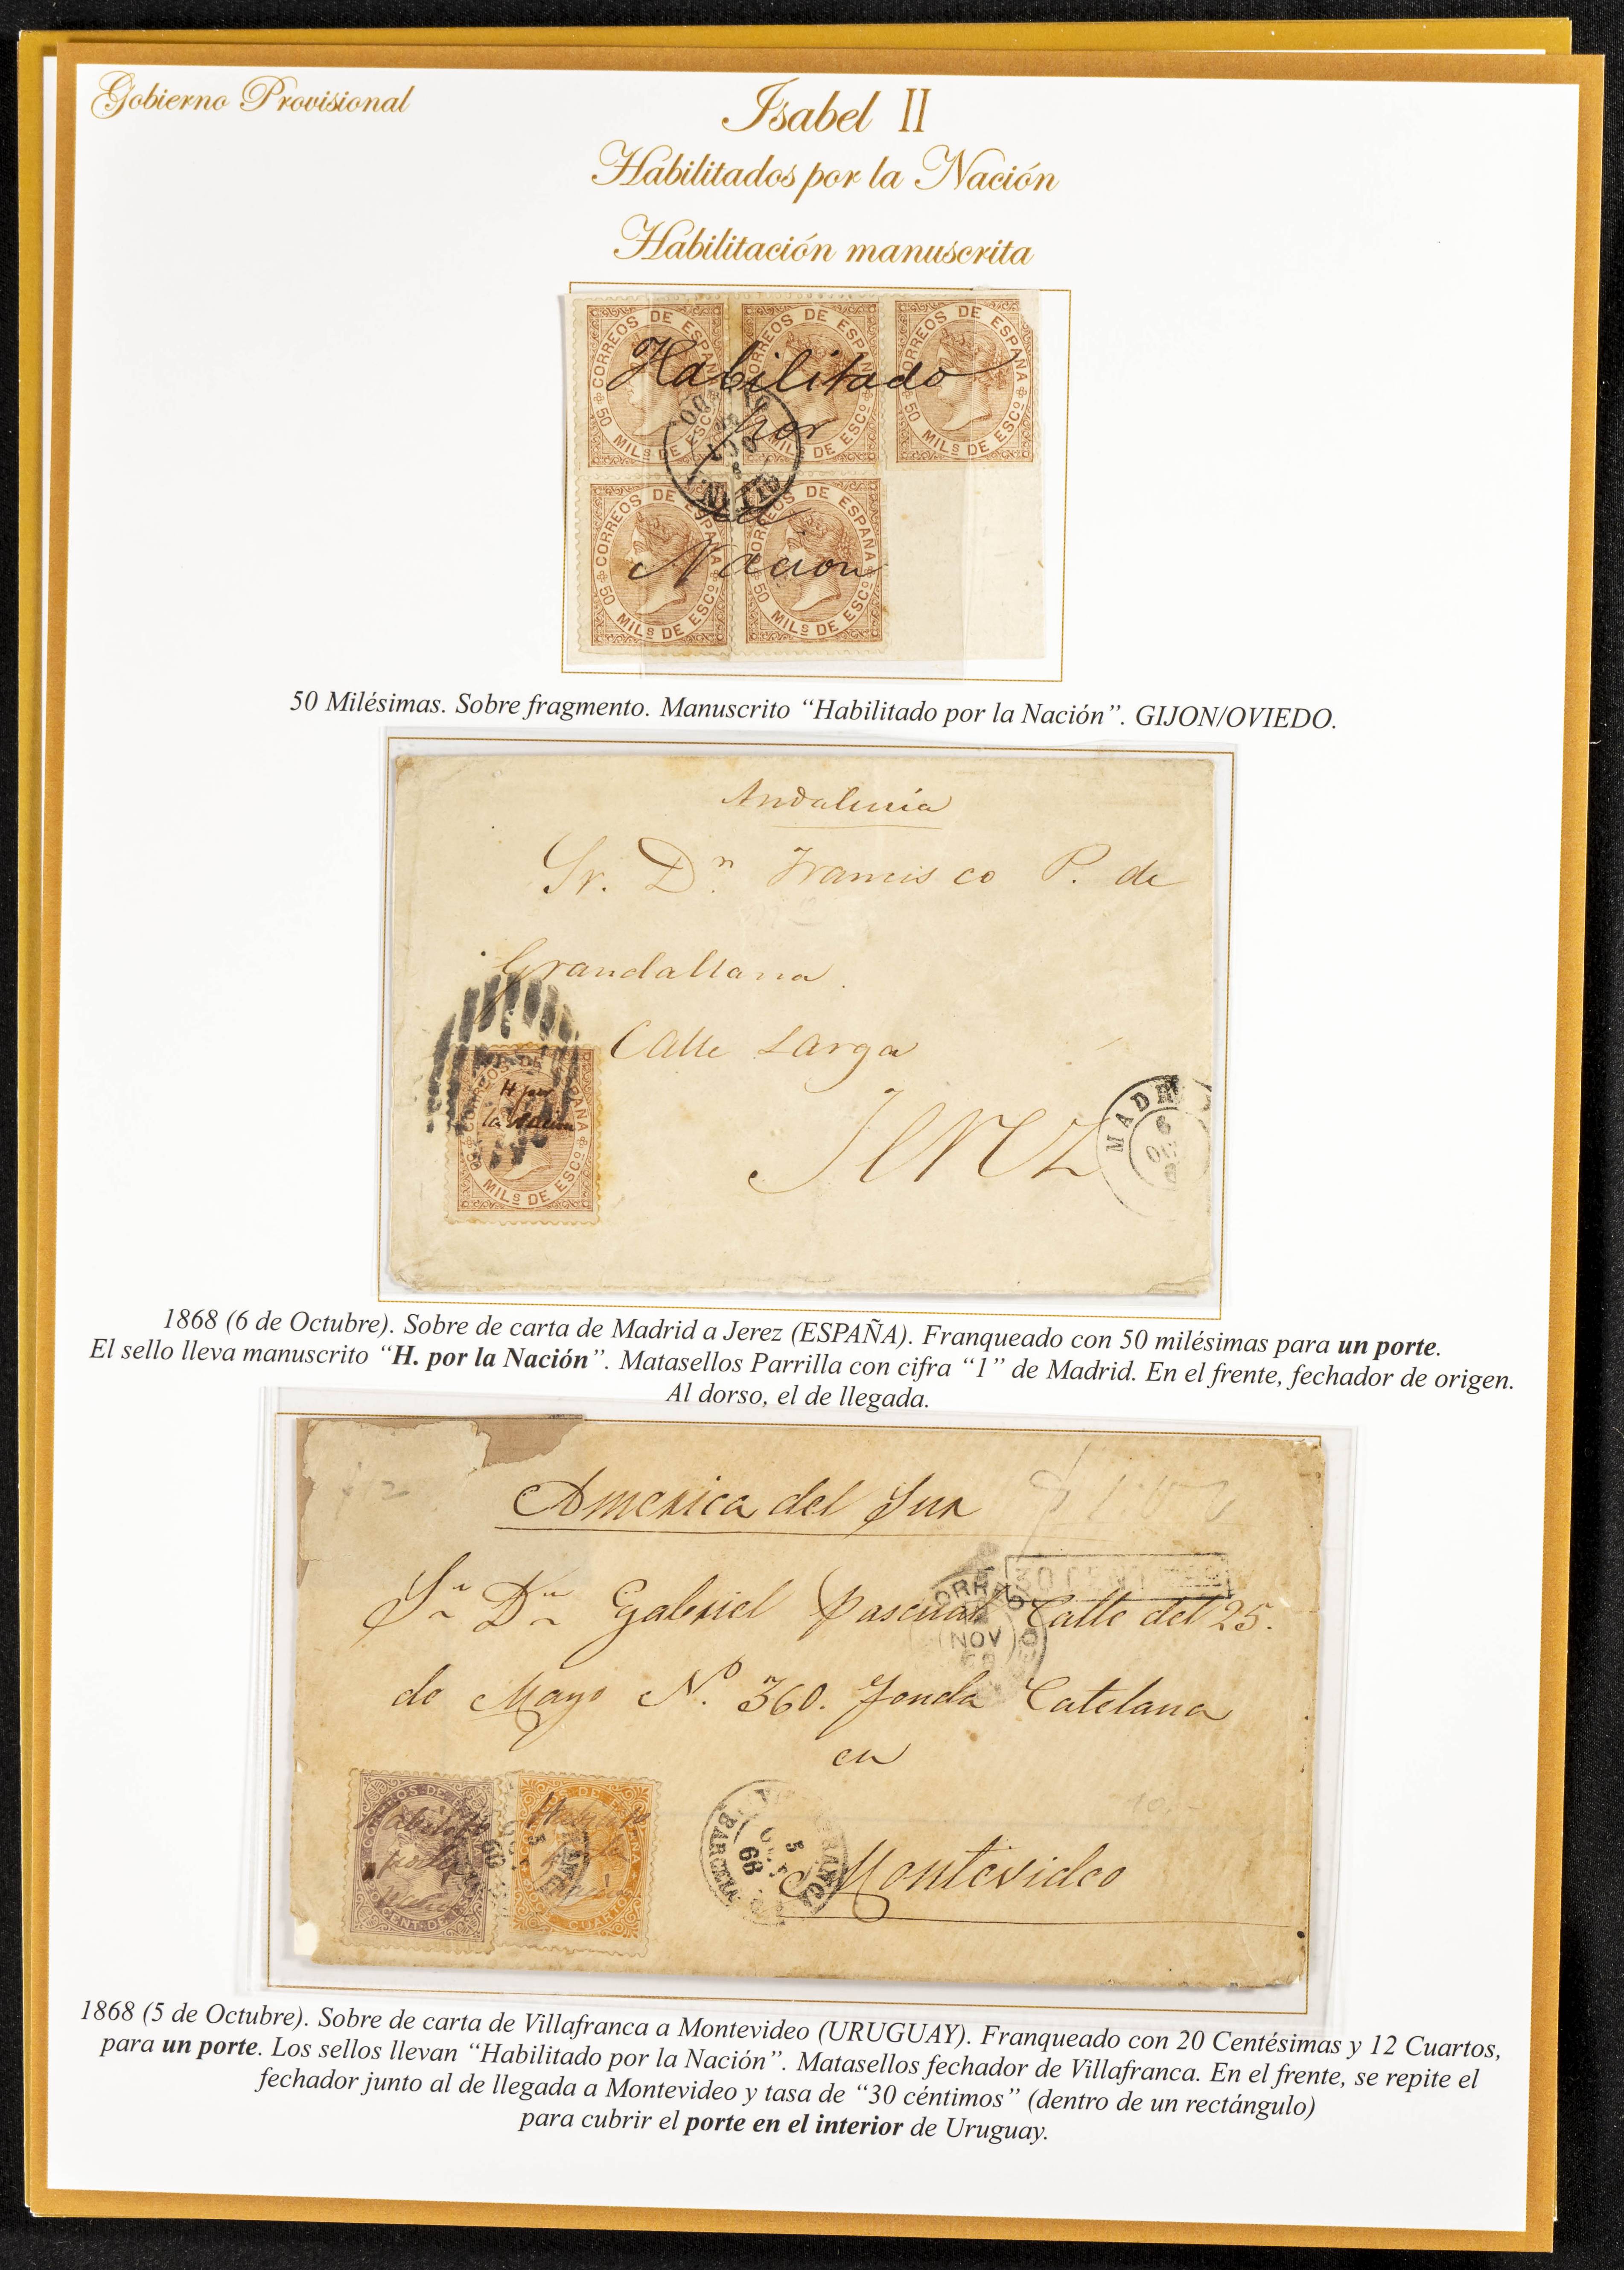 Gobierno Provisional
Isabel II
Habilitados por la Nación
Habilitación manuscrita
CORREOS DE ESPAÑA
50 MILS DE ESCO
CORREOS DE ESPAÑA
50 MILS DE ESCO
CORREOS DE ESPAÑA
50 MILS DE ESCO
Habilitado
por
la
Nacion
CORREOS DE ESPAÑA
50 MILS DE ESCO
CORREOS DE ESPAÑA
50 MILS DE ESCO
50 Milésimas. Sobre fragmento. Manuscrito “Habilitado por la Nación”. GIJON/OVIEDO.
Andalucia
Sr. Dn Francisco P. de
Grandallana.
Calle Larga
Jerez
MADR
6
OC
CORREOS DE ESPAÑA
H por
la Nacion
50 MILS DE ESCO
1868 (6 de Octubre). Sobre de carta de Madrid a Jerez (ESPAÑA). Franqueado con 50 milésimas para un porte.
El sello lleva manuscrito “H. por la Nación”. Matasellos Parrilla con cifra “1” de Madrid. En el frente, fechador de origen.
Al dorso, el de llegada.
America del Sur
30 CENT
CORREO
NOV
68
Sr Dn Gabriel Pascual Calle del 25.
de Mayo No. 360. Fonda Catelana
en
Montevideo
5
68
BARCE
1868 (5 de Octubre). Sobre de carta de Villafranca a Montevideo (URUGUAY). Franqueado con 20 Centésimas y 12 Cuartos,
para un porte. Los sellos llevan “Habilitado por la Nación”. Matasellos fechador de Villafranca. En el frente, se repite el
fechador junto al de llegada a Montevideo y tasa de “30 céntimos” (dentro de un rectángulo)
para cubrir el porte en el interior de Uruguay.